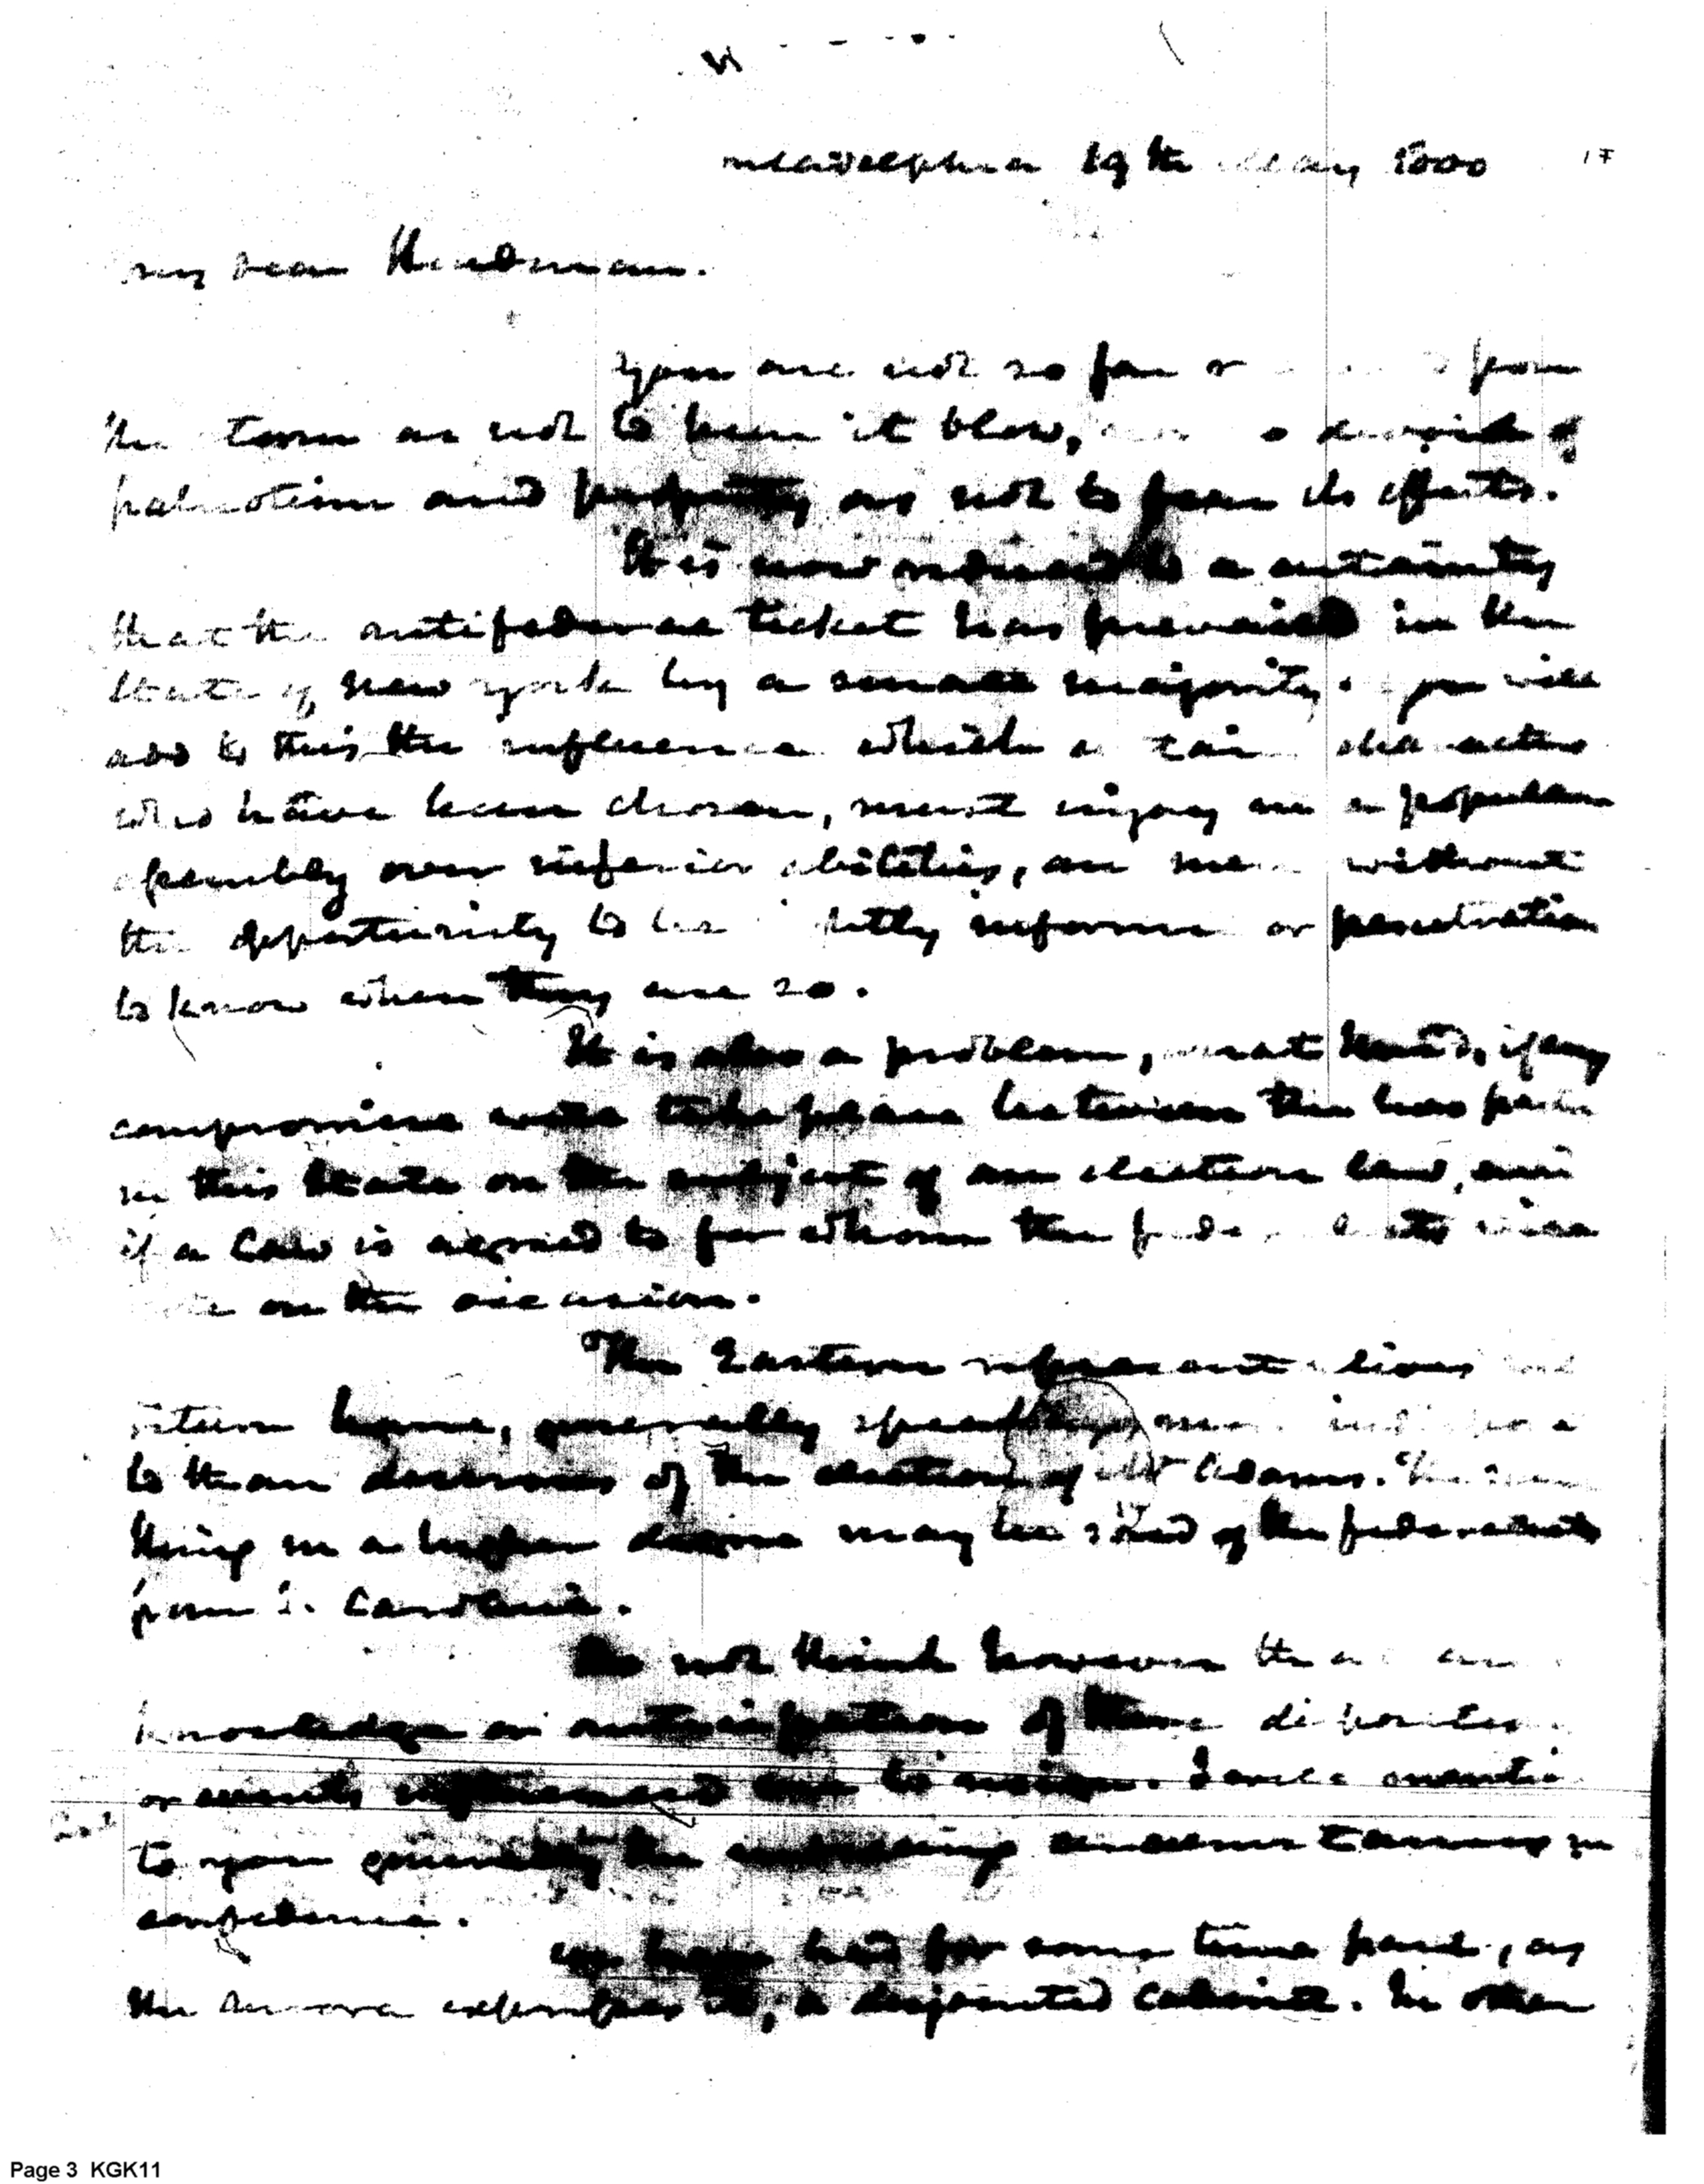 Philadelphia 19th May 1800
17
My dear
you are not so far from
the storm as not to hear it blow, devoid of
patriotism and property as not to fear its effects.
It is now reduced to a certainty
that the antifederal ticket has prevailed in the
State of New York by a small majority. you will
add to this the influence which characters
who have been chosen, must enjoy in a popular
assembly over inferior abilities, on men without
the opportunity to be informed or penetration
to know when they are so.
It is also a problem, what kind, if any
compromise will take place between the two
in this State on the subject of an election law, and
if a law is agreed to for whom the will
on the occasion.
The Eastern representatives
return home, generally speaking,
to them of the election of Mr Adams. The same
thing in a higher degree may be said of the federalists
from S. Carolina.
Do not think however
knowledge or anticipation of these
or events influenced him to resign. I only mention
to you generally the circumstances in
confidence.
We have had for some time past, as
the Aurora expresses it, a disjointed cabinet. In other
Page 3 KGK11